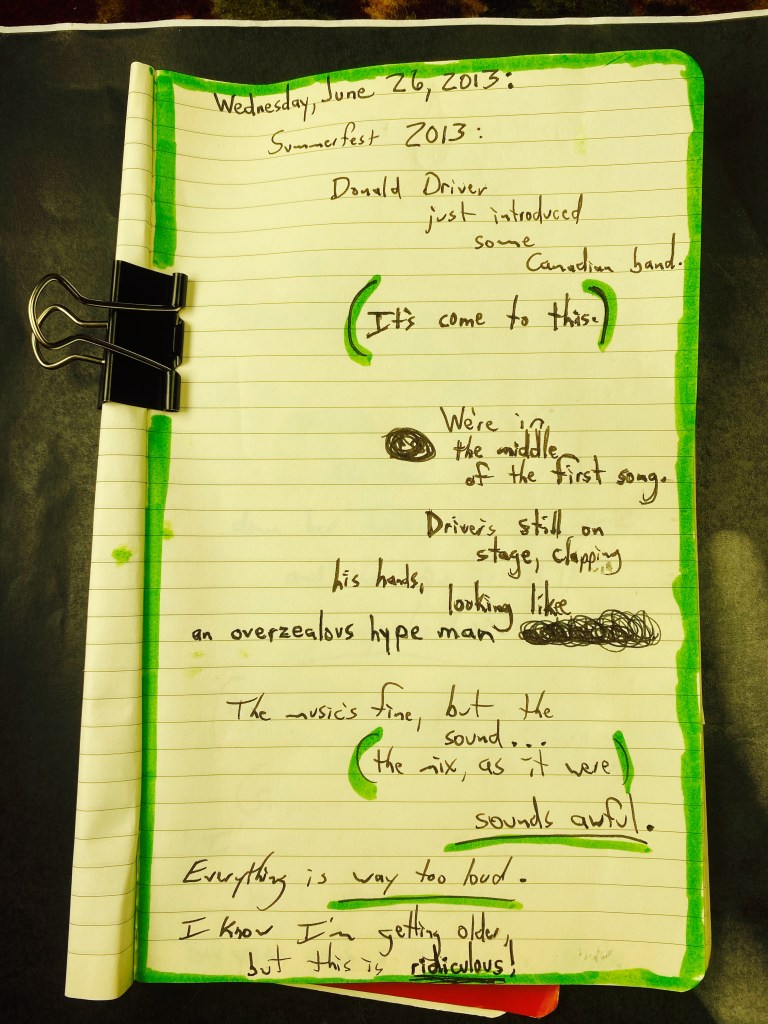 Wednesday, June 26, 2013:
Summerfest 2013:
Donald Driver
just introduced
some
Canadian band.
(It's come to this.)
We're in
the middle
of the first song.
Driver's still on
stage, clapping
his hands,
looking like
an overzealous hype man
The music's fine, but the
sound...
(the mix, as it were)
sounds awful.
Everything is way too loud.
I know I'm getting older,
but this is ridiculous!